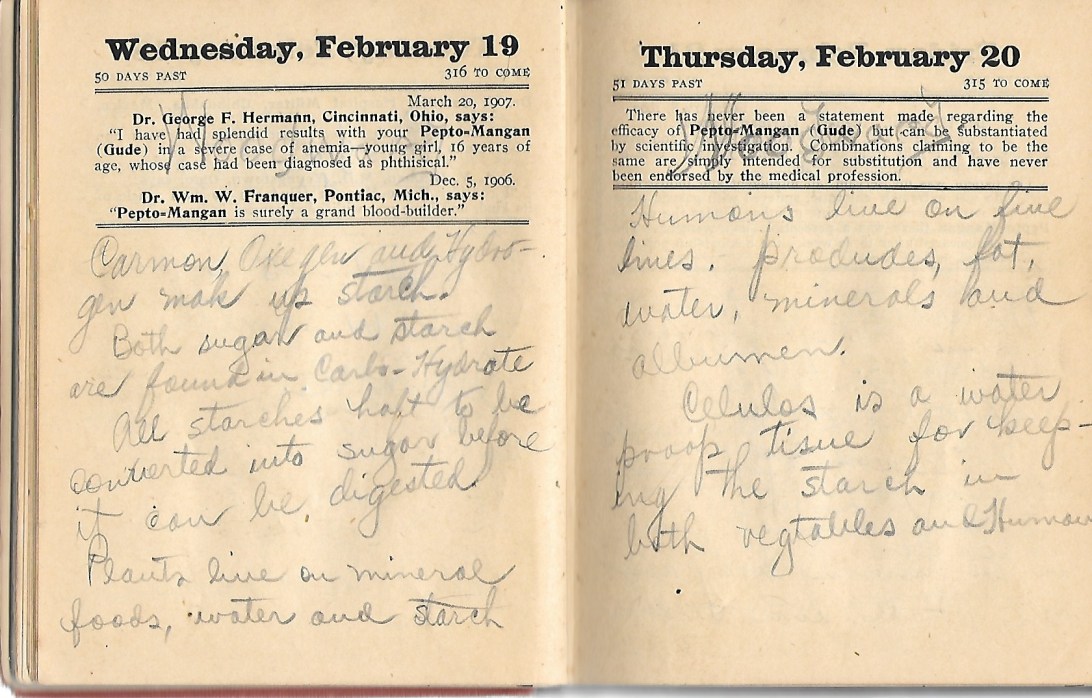 Wednesday, February 19
50 DAYS PAST 316 TO COME
March 20, 1907.
Dr. George F. Hermann, Cincinnati, Ohio, says:
"I have had splendid results with your Pepto-Mangan
(Gude) in a severe case of anemia—young girl, 16 years of
age, whose case had been diagnosed as phthisical."
Dec. 5, 1906.
Dr. Wm. W. Franquer, Pontiac, Mich., says:
"Pepto-Mangan is surely a grand blood-builder."
Carmon, Oxegen and Hydro-
gen mak up starch.
Both sugar and starch
are found in Carbo-Hydrate
All starches haft to be
converted into sugar before
it can be digested
Plants live on mineral
foods, water and starch
Thursday, February 20
51 DAYS PAST 315 TO COME
There has never been a statement made regarding the
efficacy of Pepto-Mangan (Gude) but can be substantiated
by scientific investigation. Combinations claiming to be the
same are simply intended for substitution and have never
been endorsed by the medical profession.
Humons live on five
lines. produdes, fat,
water, minerals and
albumen.
Celulos is a water
proop tisue for keep-
ing the starch in
both vegtables and Human